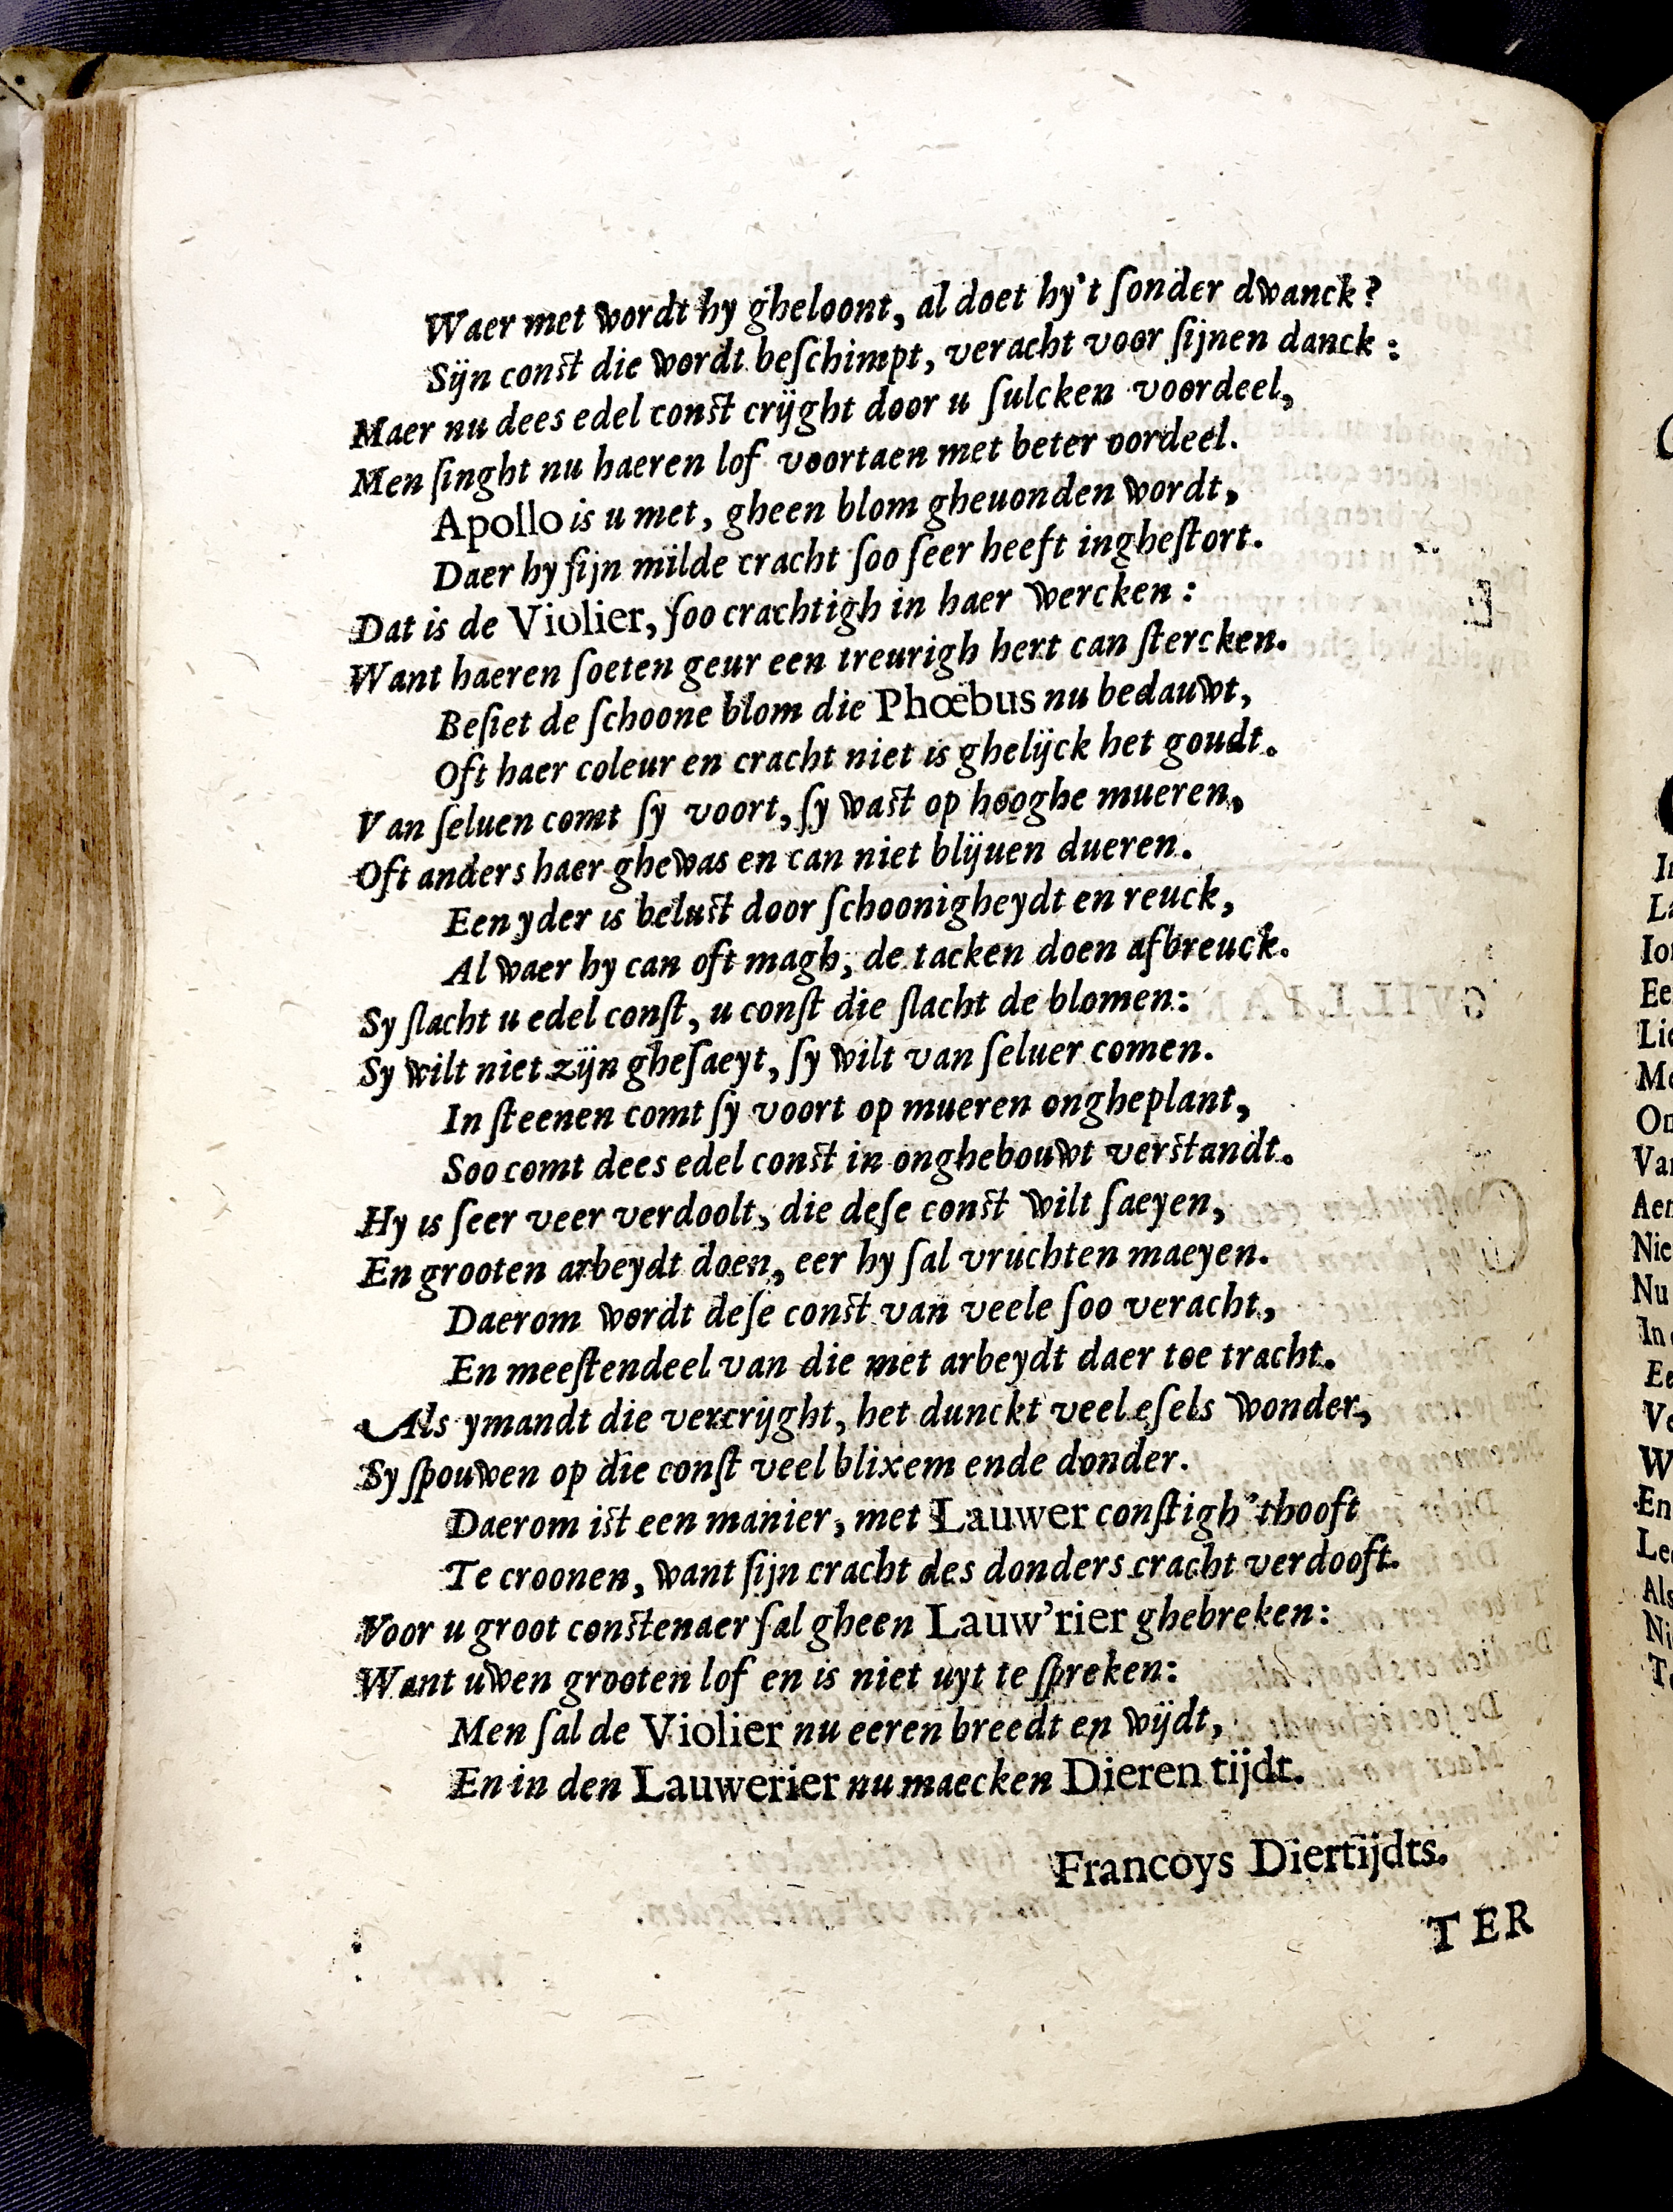 Waer met wordt hy gheloont, al doet hy't ſonder dwanck?
Sijn const die wordt beſchimpt, veracht voor ſijnen danck:
Maer nu dees edel const crijght door u ſulcken voordeel,
Men ſinght nu haeren lof voortaen met beter oordeel.
Apollo is u met, gheen blom gheuonden wordt,
Daer hy ſijn milde cracht ſoo ſeer heeft ingheſtort.
Dat is de Violier, ſoo crachtigh in haer wercken:
Want haeren ſoeten geur een treurigh hert can ſtercken.
Beſiet de ſchoone blom die Phœbus nu bedauwt,
Oft haer coleur en cracht niet is ghelijck het goudt.
Van ſeluen comt ſy voort, ſy wast op hooghe mueren,
Oft anders haer ghewas en can niet blijuen dueren.
Een yder is belust door ſchoonigheydt en reuck,
Al waer hy can oft magh, de tacken doen afbreuck.
Sy ſlacht u edel conſt, u conſt die ſlacht de blomen:
Sy wilt niet zijn gheſaeyt, ſy wilt van ſeluer comen.
In ſteenen comt ſy voort op mueren ongheplant,
Soo comt dees edel const in onghebouwt verstandt.
Hy is ſeer veer verdoolt, die deſe const wilt ſaeyen,
En grooten arbeydt doen, eer hy ſal vruchten maeyen.
Daerom wordt deſe const van veele ſoo veracht,
En meeſtendeel van die met arbeydt daer toe tracht.
Als ymandt die vercrijght, het dunckt veel eſels wonder,
Sy ſpouwen op die conſt veel blixem ende donder.
Daerom ist een manier, met Lauwer conſtigh 'thooft
Te croonen, want ſijn cracht des donders cracht verdooft.
Voor u groot constenaer ſal gheen Lauw'rier ghebreken:
Want uwen grooten lof en is niet uyt te ſpreken:
Men ſal de Violier nu eeren breedt en wijdt,
En in den Lauwerier nu maecken Dieren tijdt.
Francoys Diertijdts.
TER